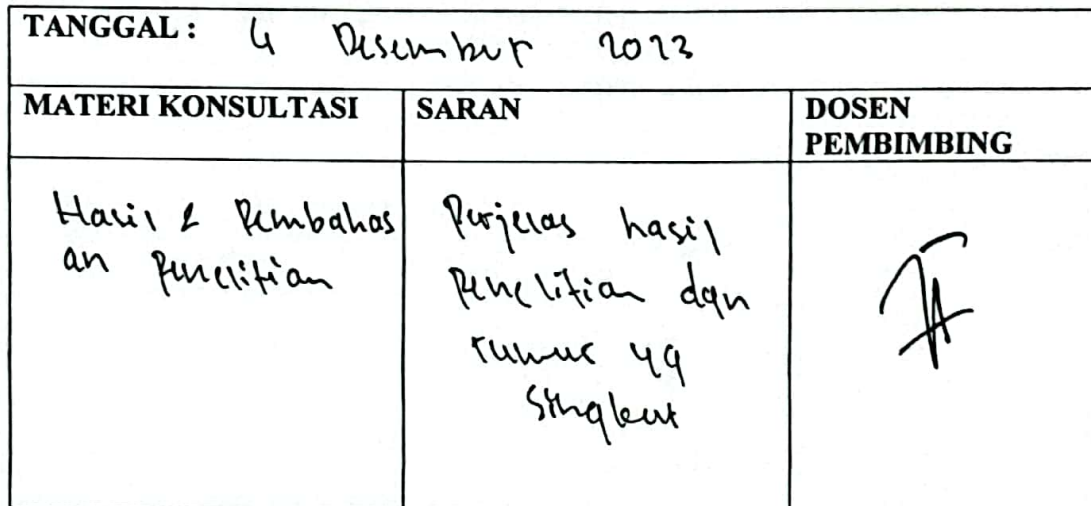 TANGGAL : 4 Desember 2023
MATERI KONSULTASI
SARAN
DOSEN
PEMBIMBING
Hasil & Pembahas
an Penelitian
Perjelas hasil
Penelitian dgn
rumus yg
Singkat